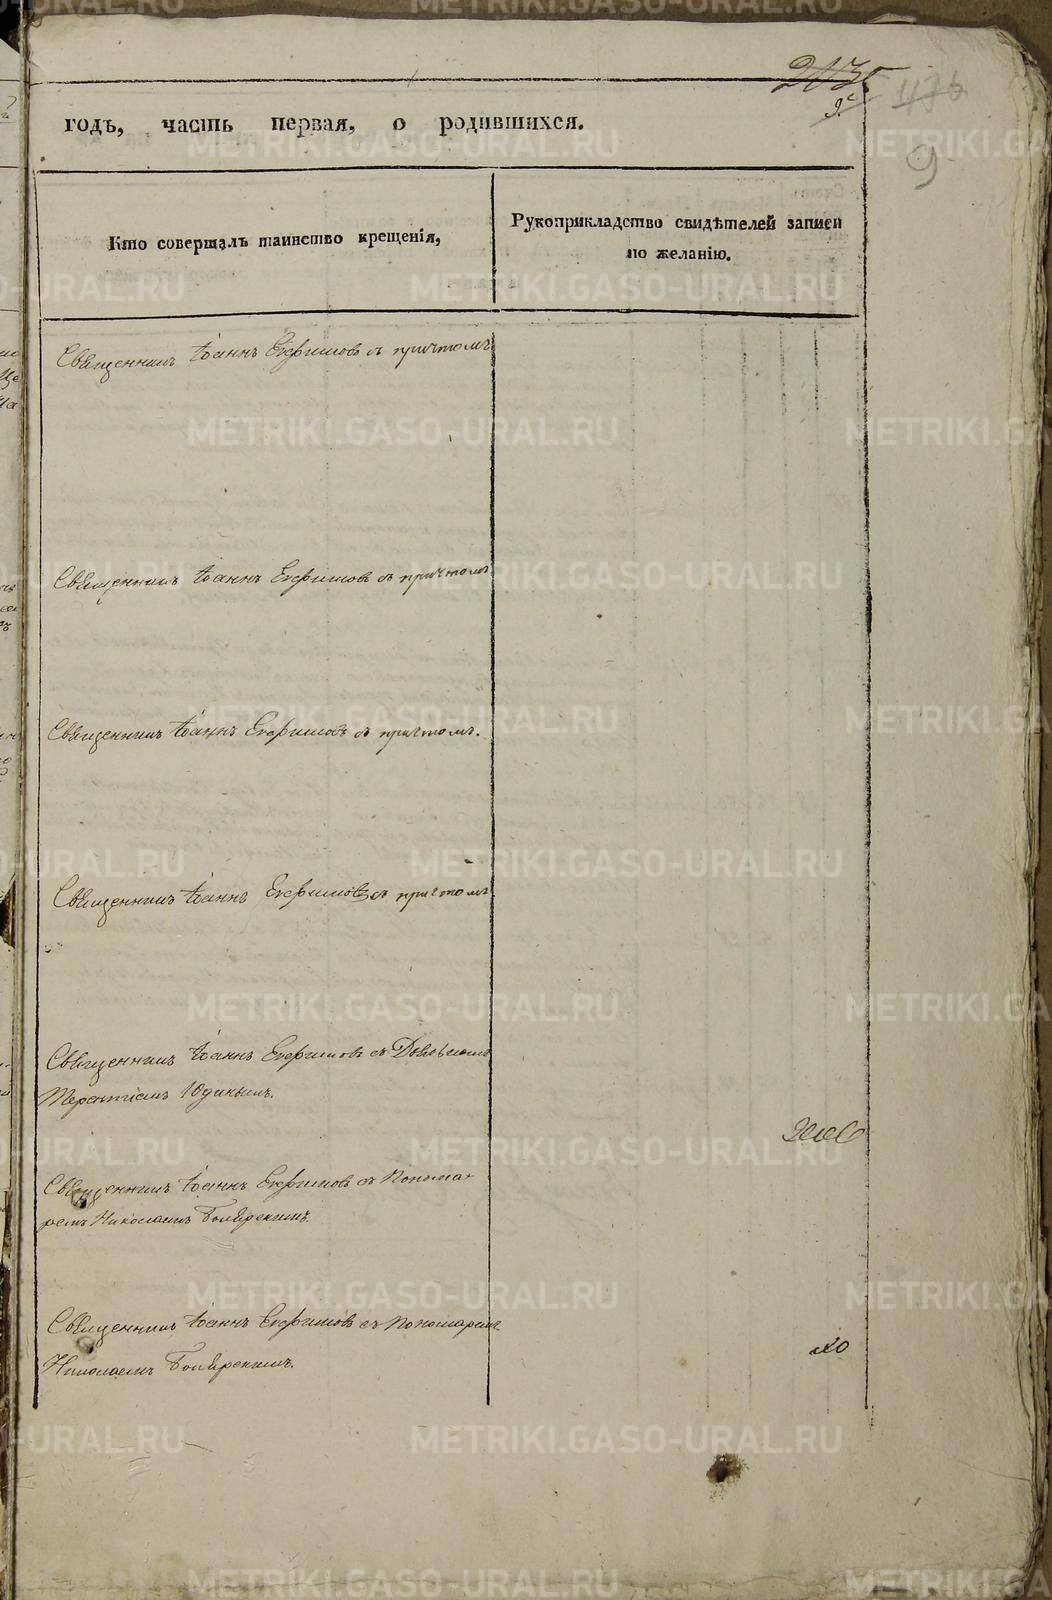 годъ, часть первая, о родившихся.
9
Кто совершалъ таинство крещенія,
Рукоприкладство свидѣтелей записи
по желанію.
Священникъ Іоаннъ Ефимовъ съ причтомъ
Священникъ Іоаннъ Ефимовъ съ причтомъ
Священникъ Іоаннъ Ефимовъ съ причтомъ.
Священникъ Іоаннъ Ефимовъ съ причтомъ
Священникъ Іоаннъ Ефимовъ съ
Юдинымъ.
Священникъ Іоаннъ Ефимовъ съ Понома-
ремъ Николаемъ
Священникъ Іоаннъ Ефимовъ съ Пономаремъ
Николаемъ
METRIKI.GASO-URAL.RU